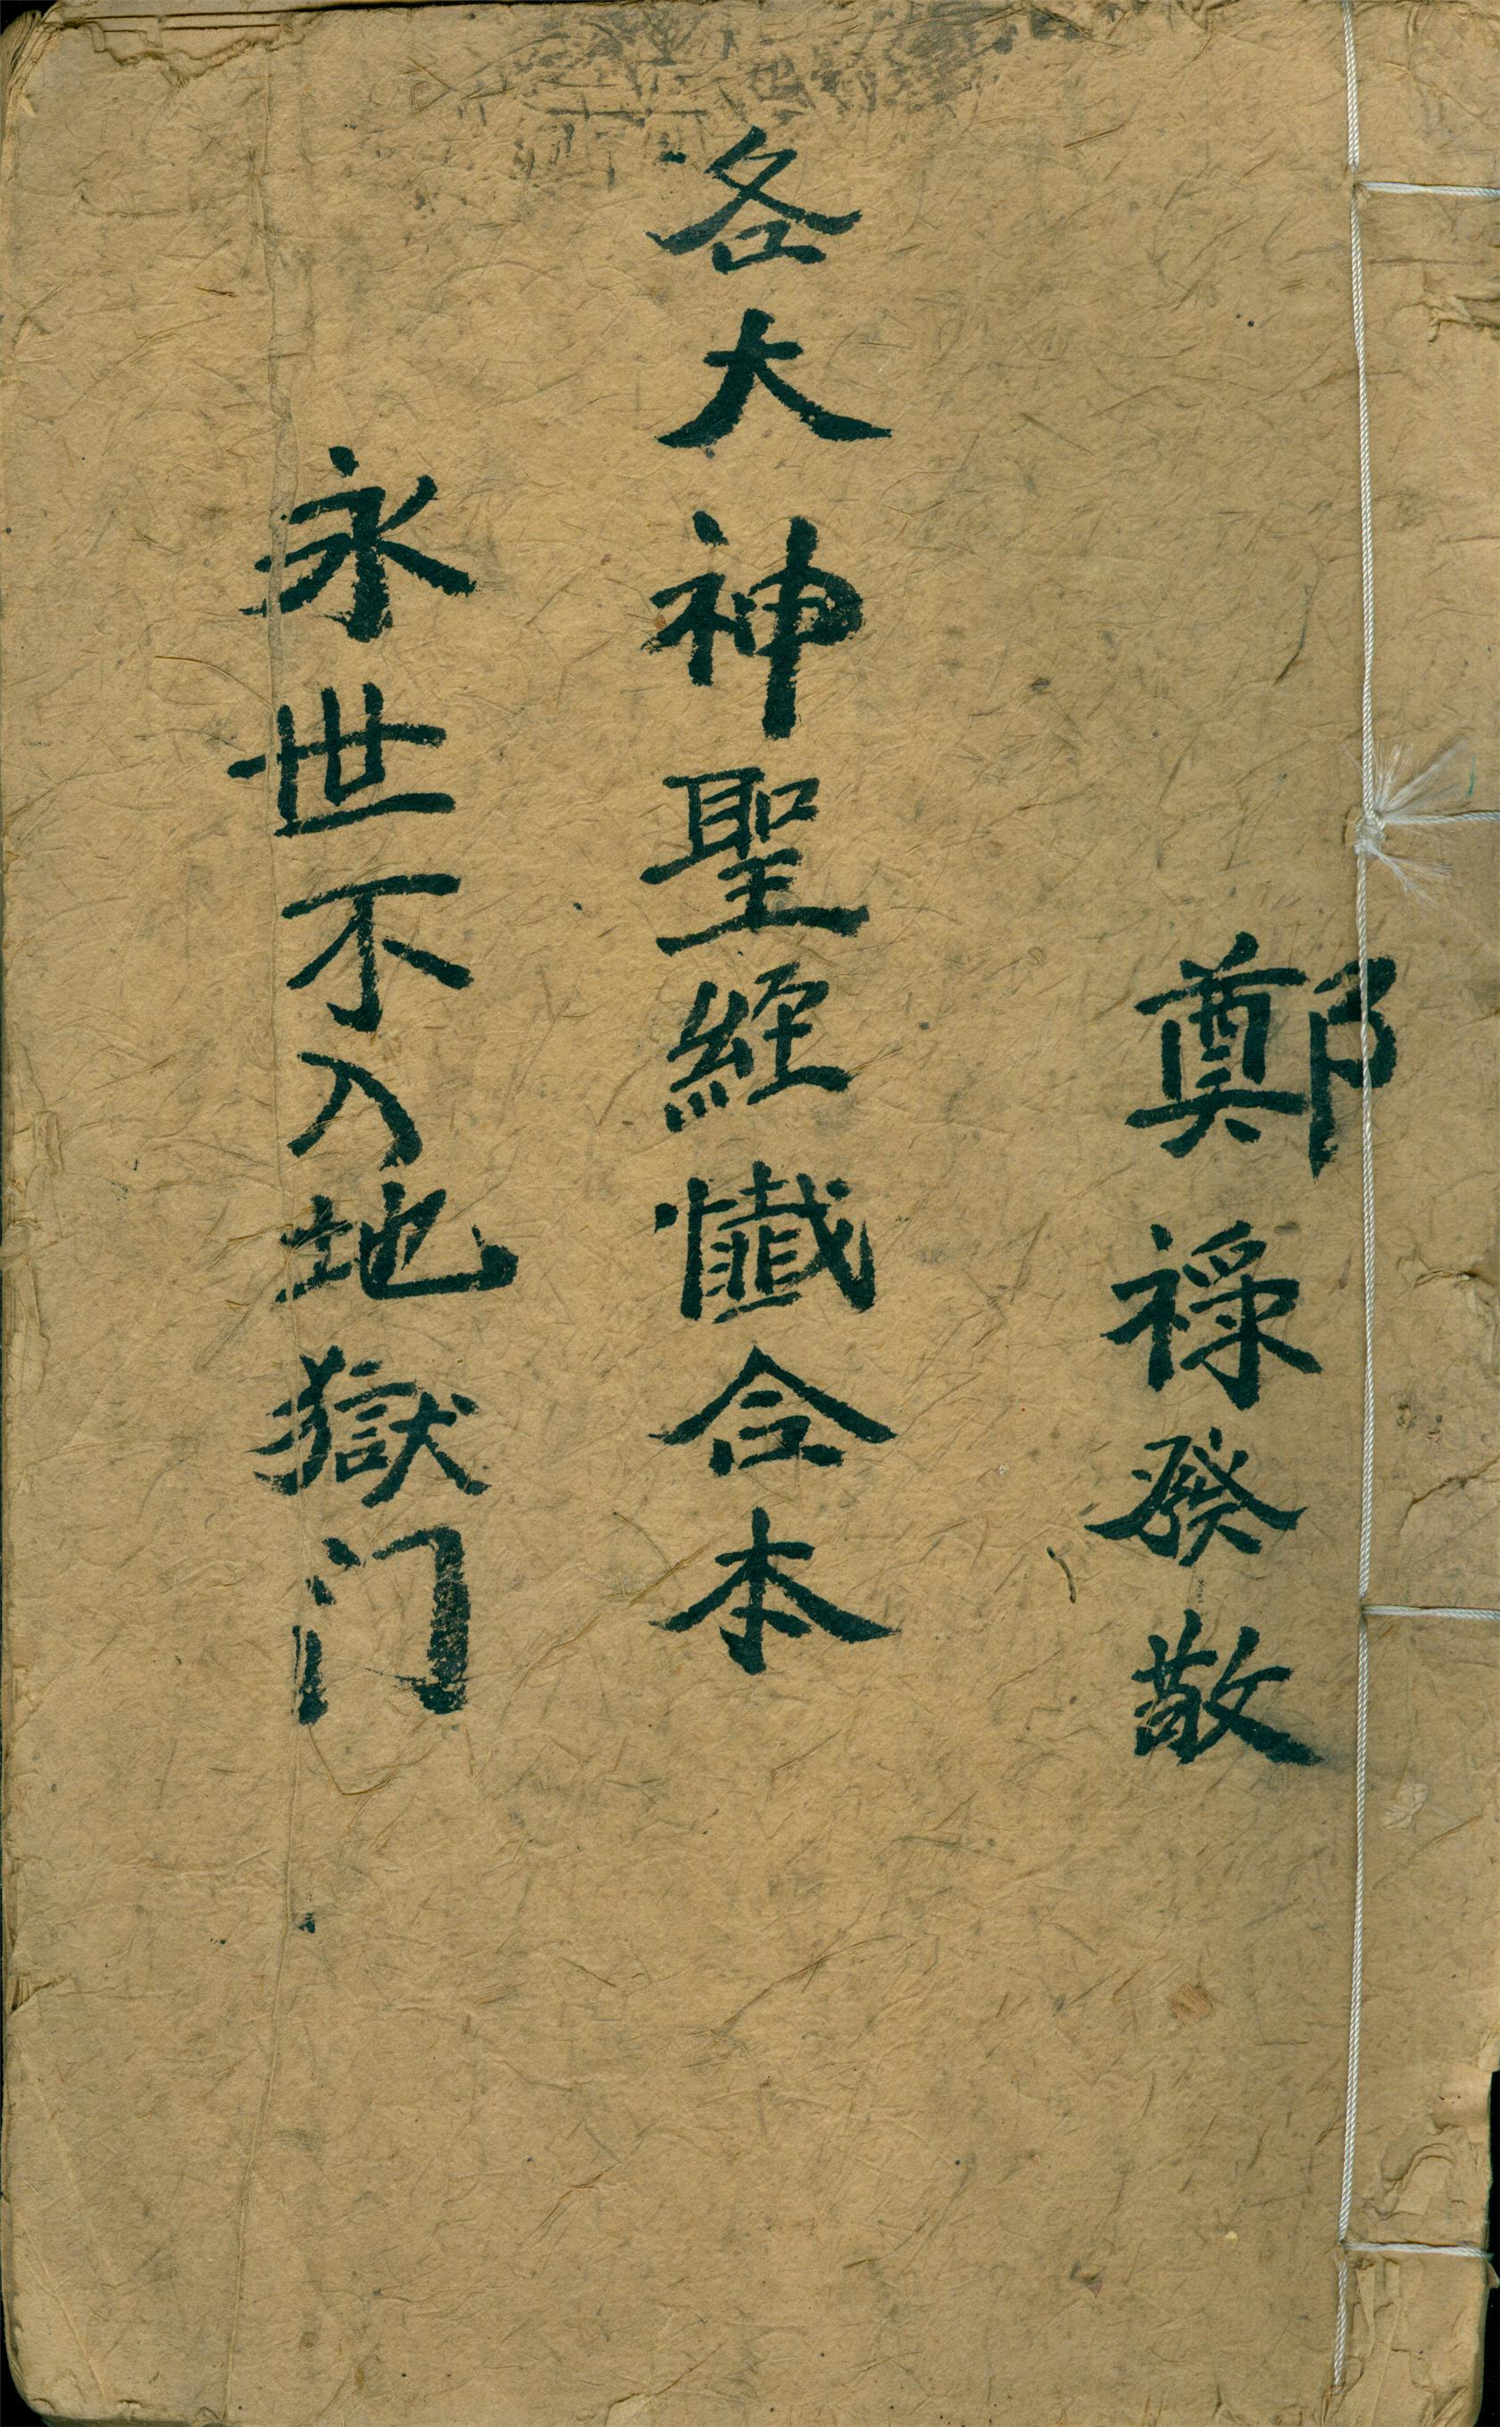 鄭禄發敬
各大神聖經懺合本
永世不入地獄门